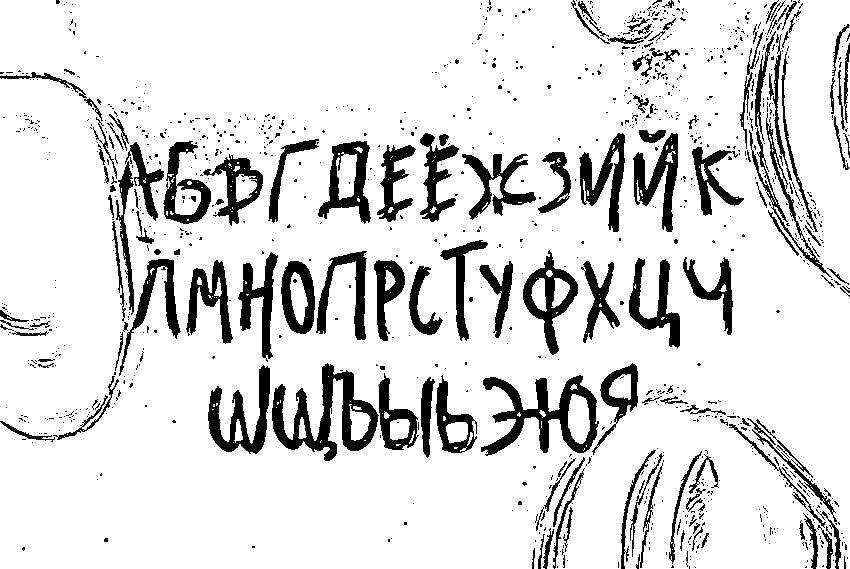 АБВГДЕЁЖЗИЙК
ЛМНОПРСТУФХЦЧ
ШЩЪЫЬЭЮЯ